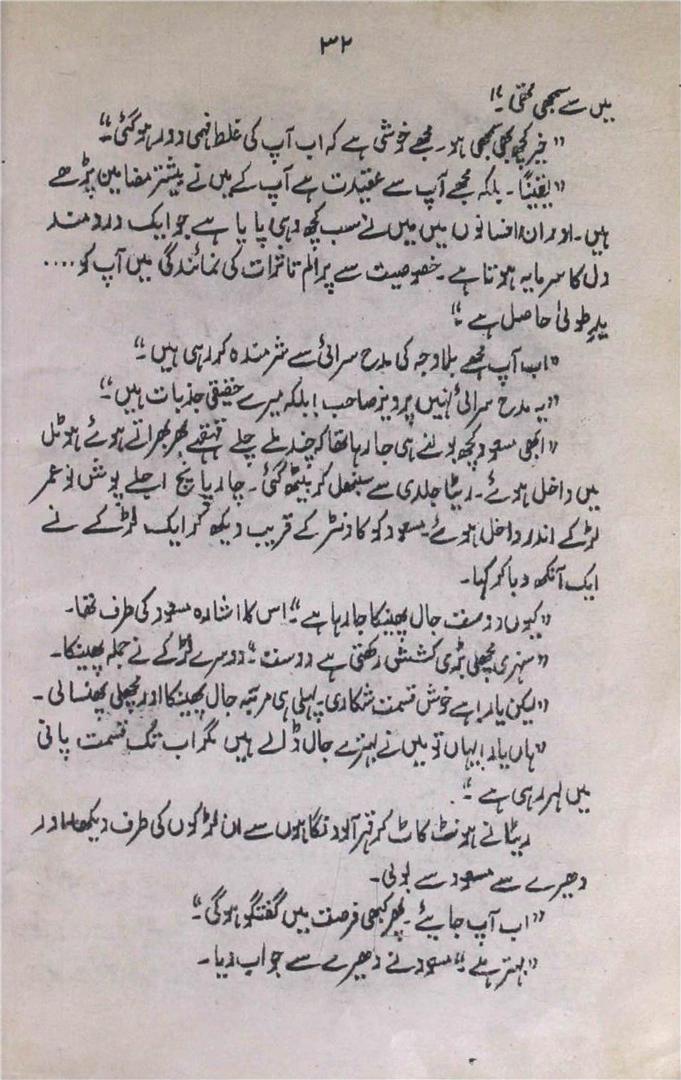 ۳۲
میں سے سمجھی تھی۔"
"خیر کچھ بھی سمجھی ہو۔ مجھے خوشی ہے کہ اب آپ کی غلط فہمی دور ہو گئی۔"
"یقیناً۔ بلکہ مجھے آپ سے عقیدت ہے آپ کے میں نے بیشتر مضامین پڑھے
ہیں۔ اور ان افسانوں میں میں نے سب کچھ وہی پایا ہے جو ایک دردمند
دل کا سرمایہ ہوتا ہے۔ خصوصیت سے پرالم تاثرات کی نمائندگی میں آپ کو....
یدِ طولیٰ حاصل ہے۔"
"اب آپ مجھے بلا وجہ کی مدح سرائی سے شرمندہ کر رہی ہیں۔"
"یہ مدح سرائی نہیں پرویز صاحب! بلکہ میرے حقیقی جذبات ہیں۔"
"ابھی مسعود کچھ بولنے ہی جا رہا تھا کہ چند ملے جلے قہقہے بھربھراتے ہوئے ہوٹل
میں داخل ہوئے۔ ریٹا جلدی سے سنبھل کر بیٹھ گئی۔ چار پانچ اجلے پوش نوعمر
لڑکے اندر داخل ہوئے۔ مسعود کو کاونٹر کے قریب دیکھ کر ایک لڑکے نے
ایک آنکھ دبا کر کہا۔
"کیوں دوست جال پھینکا جا رہا ہے"۔ اس کا اشارہ مسعود کی طرف تھا۔
"سنہری مچھلی بڑی کشش رکھتی ہے دوست"۔ دوسرے لڑکے نے جملہ پھینکا۔
"لیکن یار ہے خوش قسمت شکاری۔ پہلی ہی مرتبہ جال پھینکا اور مچھلی پھنسالی۔
"ہاں یار! یہاں تو میں نے بہترے جال ڈالے ہیں مگر اب تک قسمت پانی
میں لہرا رہی ہے"۔
ریٹا نے ہونٹ کاٹ کر قہر آلود نگاہوں سے ان لڑکوں کی طرف دیکھا اور
دھیرے سے مسعود سے بولی۔
"اب آپ جایئے۔ پھر کبھی فرصت میں گفتگو ہوگی۔"
"بہتر ہے" مسعود نے دھیرے سے جواب دیا۔